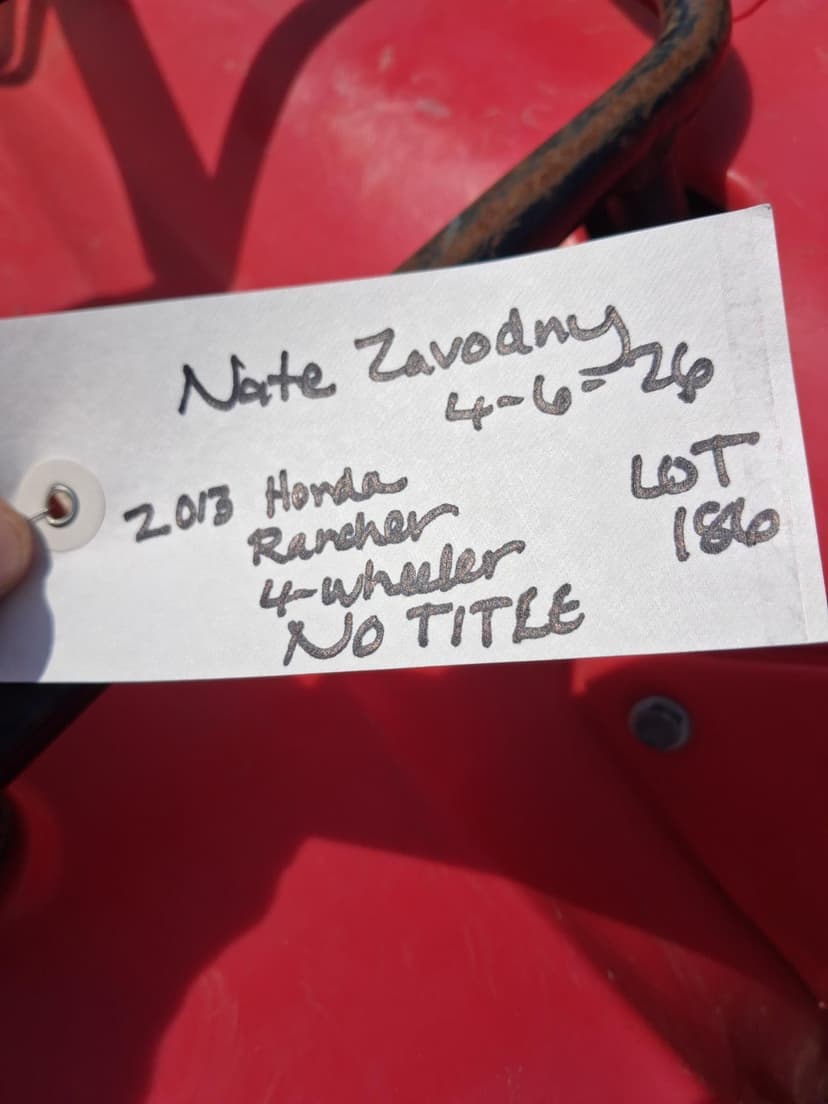 Nate Zavodny
4-6-26
2013 Honda
Rancher
4-wheeler
NO TITLE
LOT
186